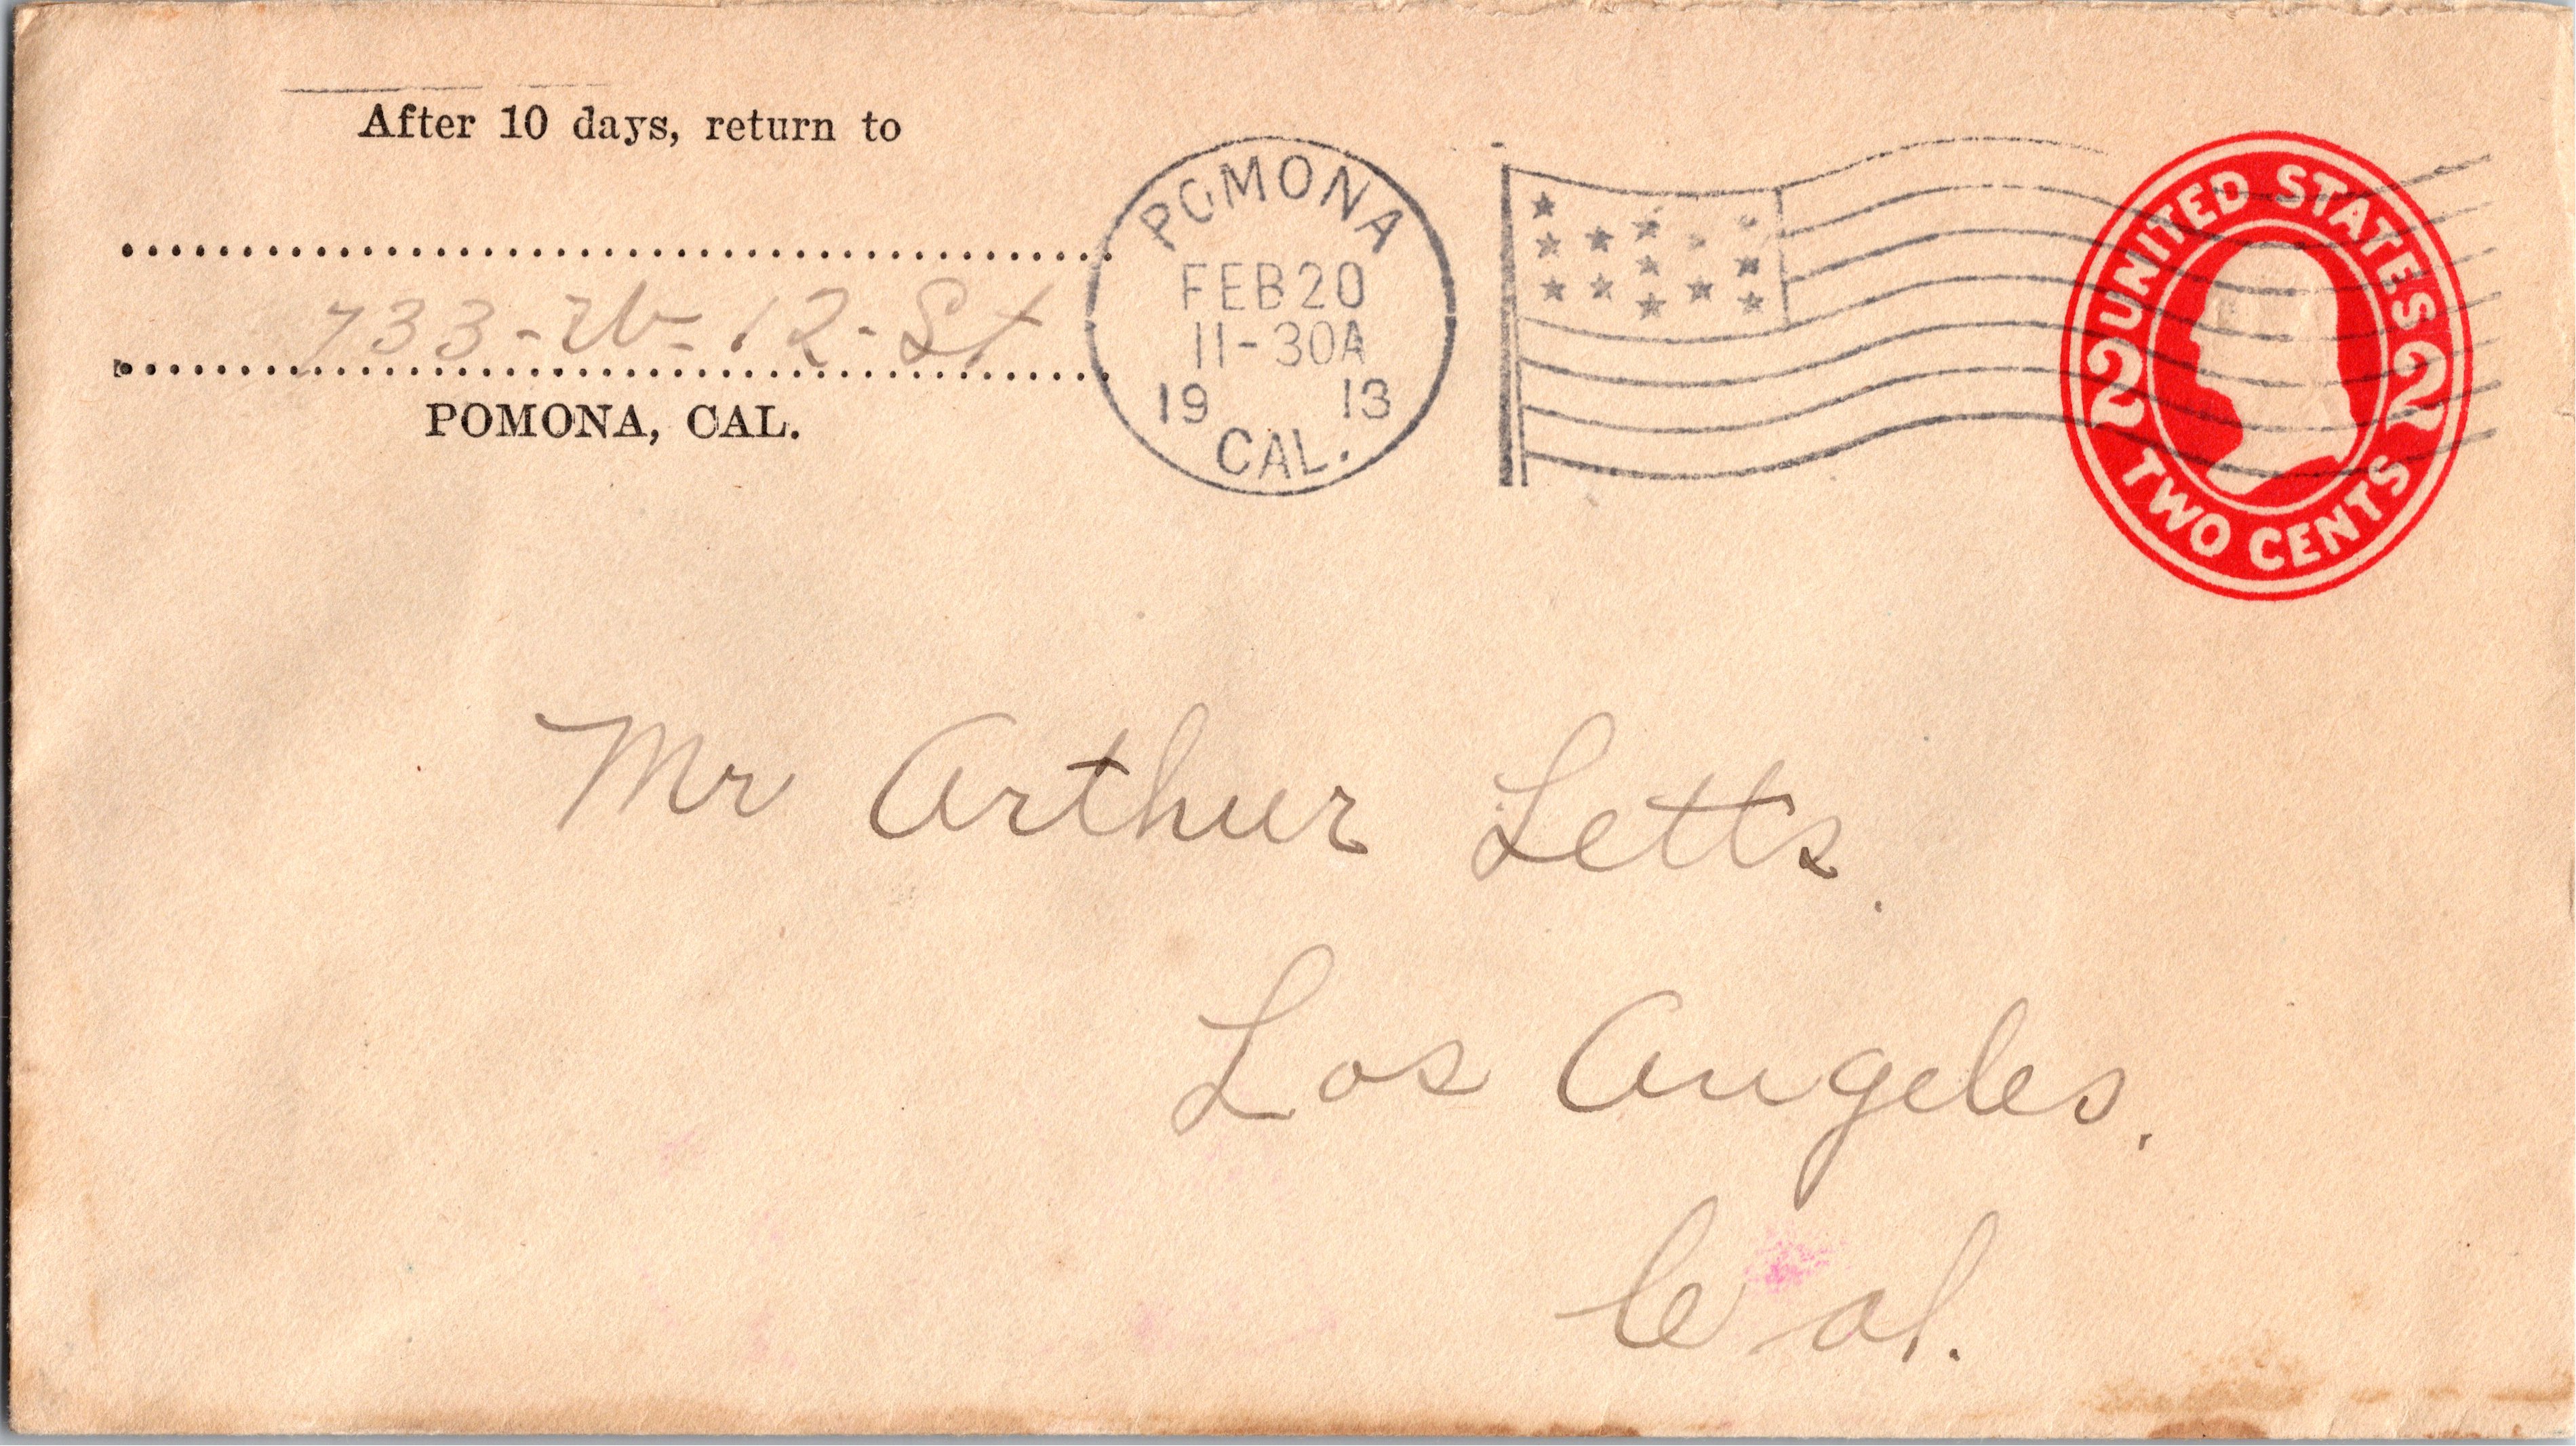 After 10 days, return to
733-W-12-St
POMONA, CAL.
POMONA
FEB 20
11-30A
19 13
CAL.
UNITED STATES
2 2
TWO CENTS
Mr Arthur Letts.
Los Angeles.
Cal.